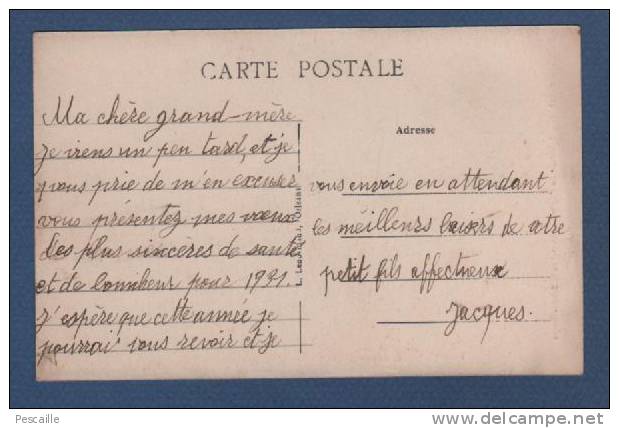 CARTE POSTALE
Ma chère grand-mère
je viens un peu tard, et je
vous prie de m'en excuser
vous présentez mes vœux
les plus sincères de santé
et de bonheur pour 1931.
J'espère que cette année je
pourrai vous revoir et je
Adresse
vous envoie en attendant
les meilleurs baisers de votre
petit fils affectueux
Jacques.
Pescaille
www.delcampe.net